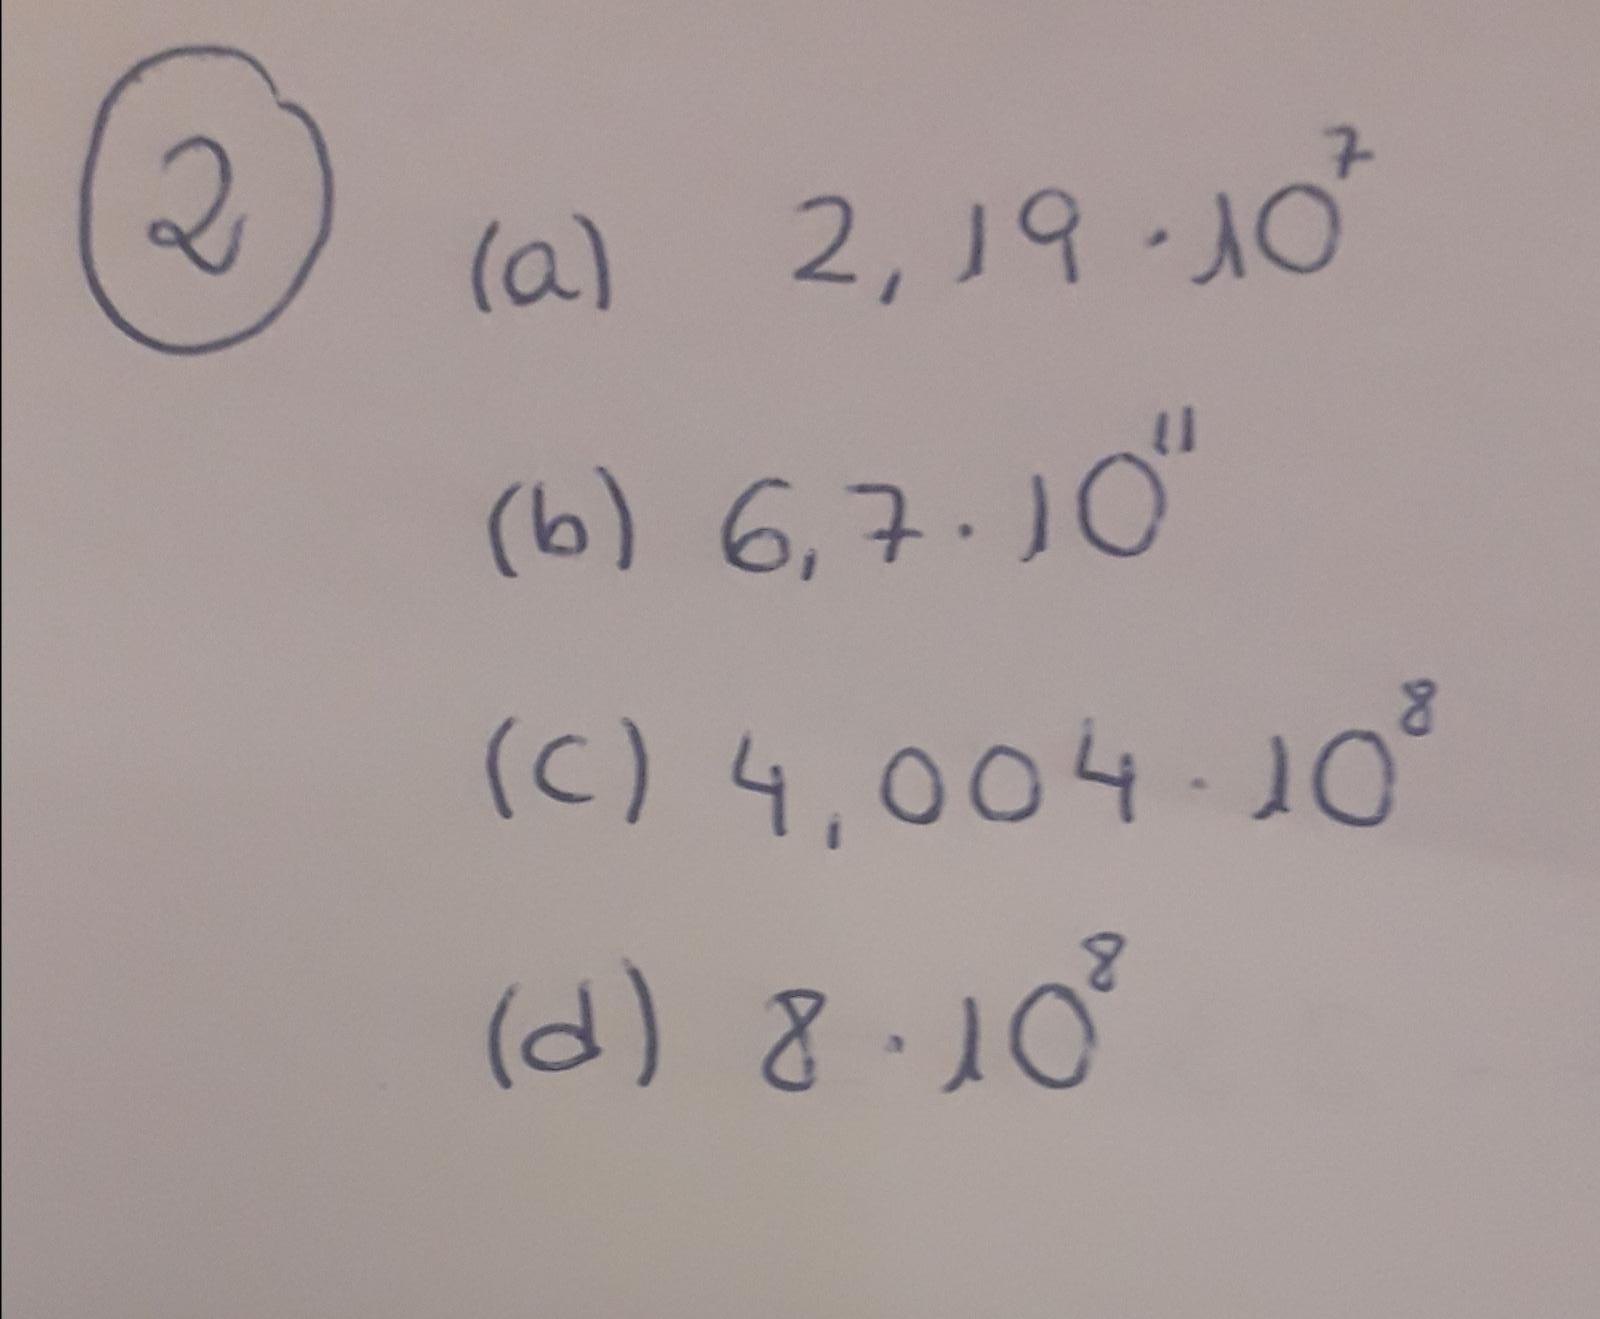 2 (a) 2,19 · 10⁷
(b) 6,7 · 10¹¹
(c) 4,004 · 10⁸
(d) 8 · 10⁸